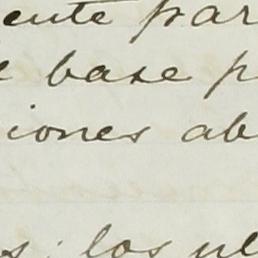 ente par
e base p
iones ab
s; los ul